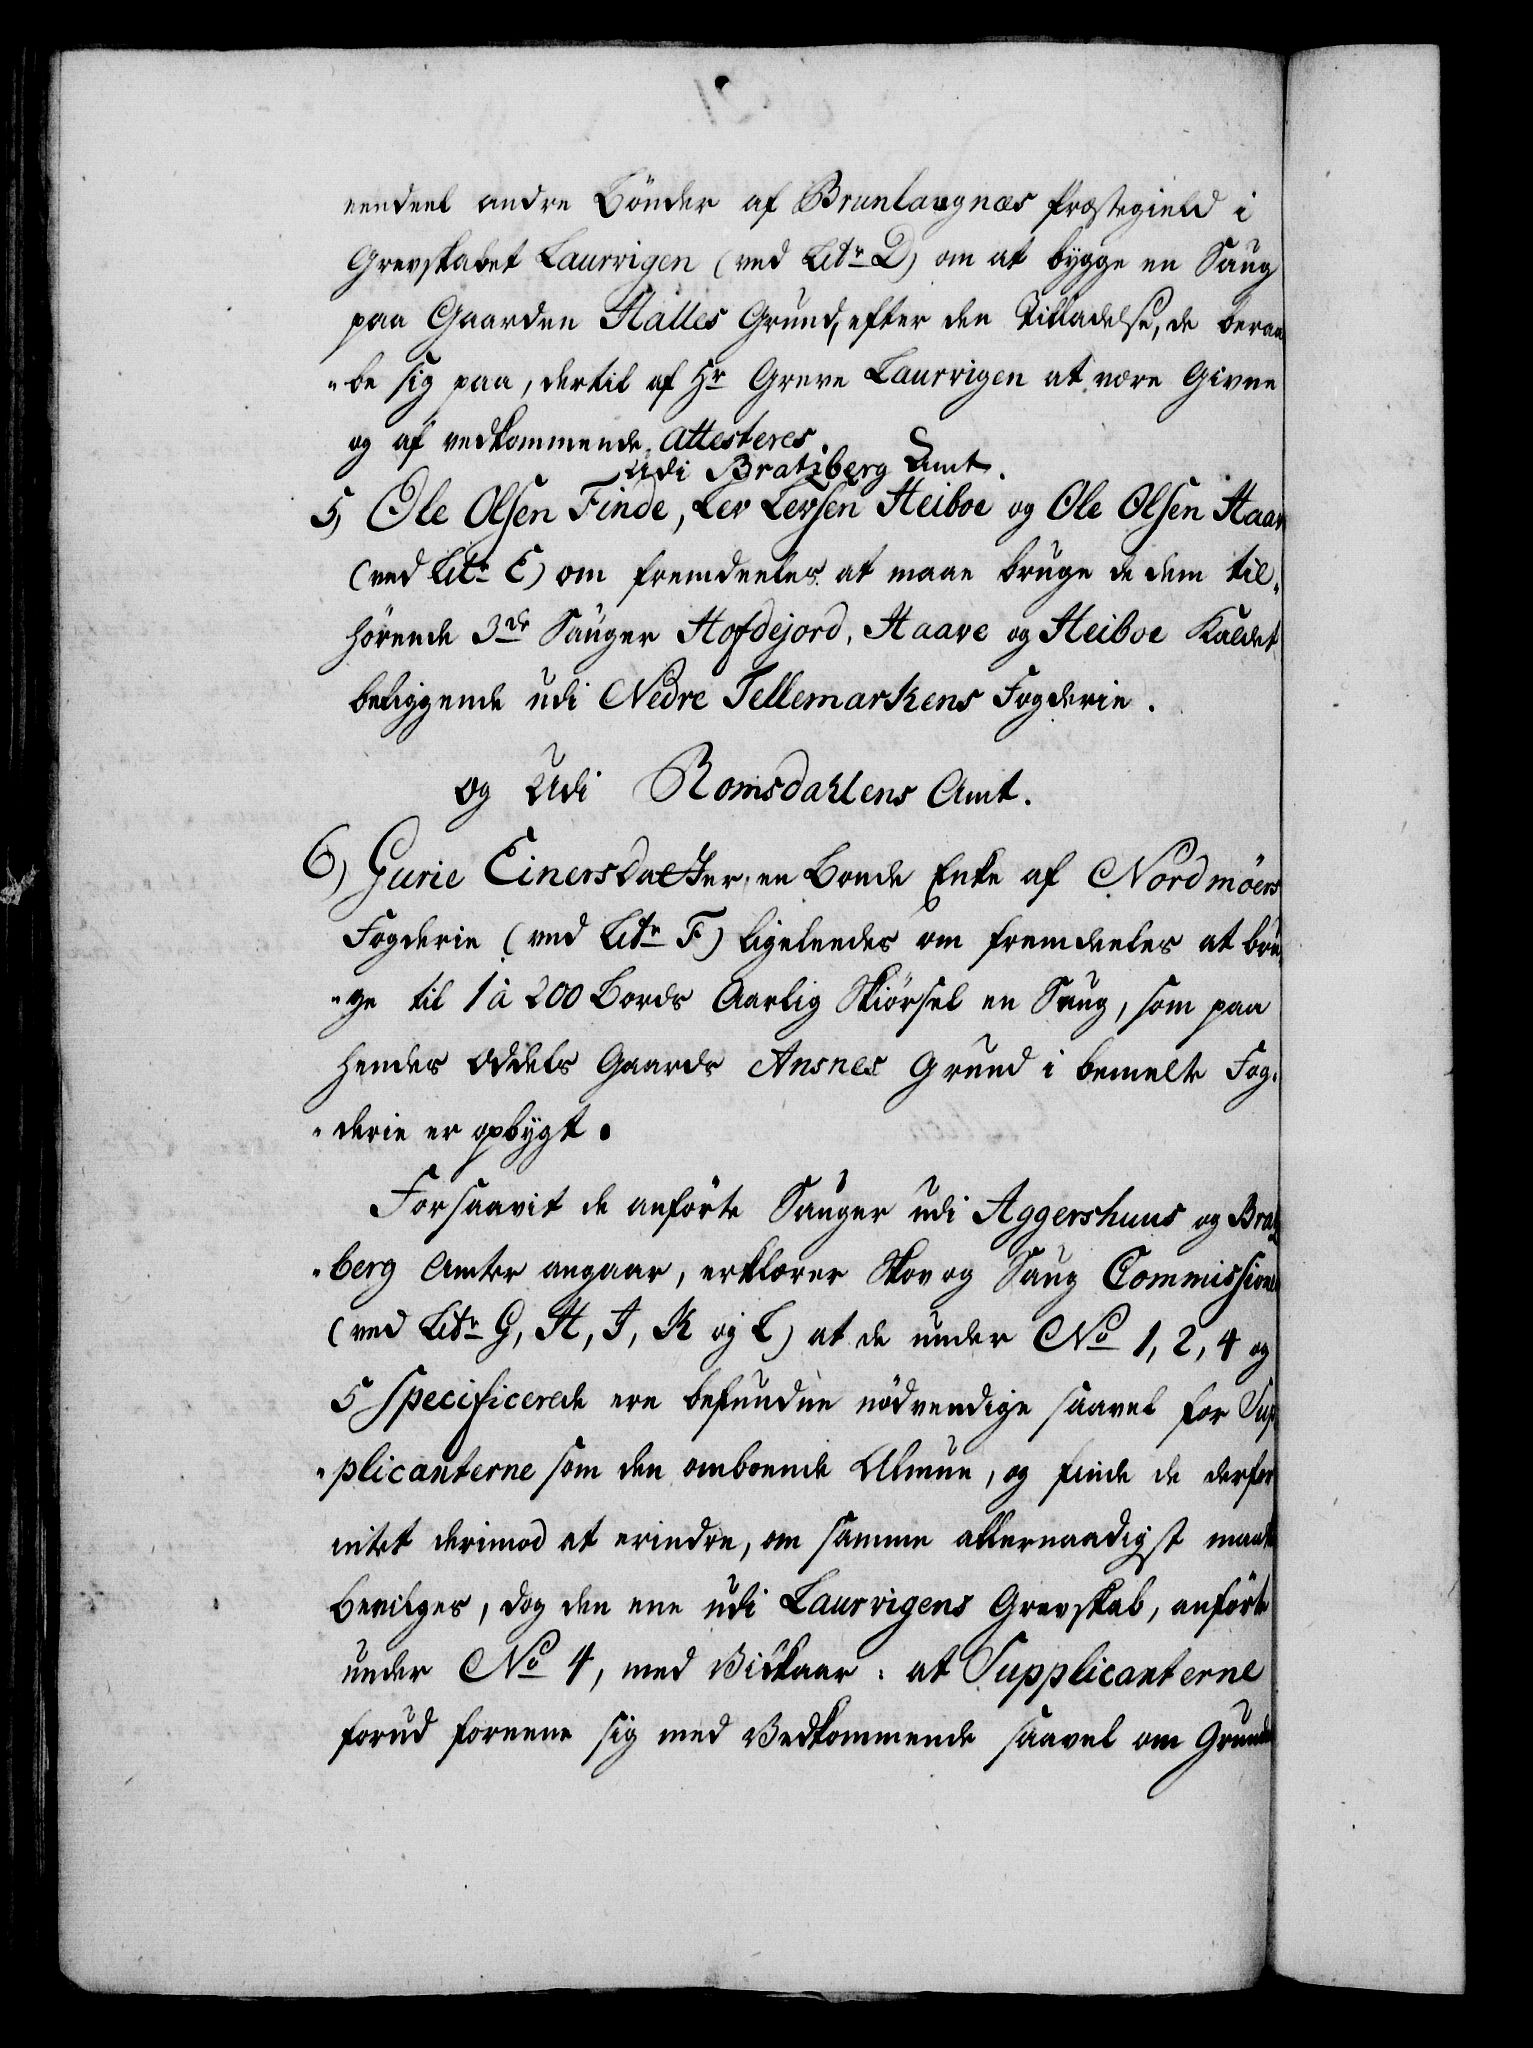 eendeel andre Bönder af Brunlaugnæs Præstegield i
Grevskabet Laurvigen (ved Litr D) om at bygge en Saug
paa Gaarden Halles Grund, efter den Tilladelse, de beraa
"be sig paa, dertil af Hr Greve Laurvigen at være Givne
og af vedkommende attesteres.
Udi Bratzberg Amt.
5) Ole Olsen Finde, Lev Levsen Heiboe og Ole Olsen Haave
(ved Litr E) om fremdeeles at maae bruge de dem til,
hörende 3de Sauger Hofdejord, Haave og Heiboe Kaldet
beliggende udi Nedre Tellemarkens Fogderie.
og Udi Romsdahlens Amt.
6) Gurie Einersdatter, en Bonde Enke af Nordmöers
Fogderie (ved Litr F) ligeleedes om fremdeeles at bru,
"ge til 1 à 200 Bords Aarlig Skiörsel en Saug, som paa
hendes Oddels Gaards Ansnes Grund i bemelte Fog,
"derie er opbygt.
Forsaavit de anförte Sauger udi Aggershuus og Bratz
"berg Amter angaar, erklærer Skov og Saug Commissionen
(ved Litr G, H, I, K og L) at de under No 1, 2, 4 og
5 specificerede ere befundne nödvendige saavel for Sup
"plicanterne som den omboende Almue, og finde de derfor
intet derimod at erindre, om samme allernaadigst maatte
bevilges, dog den ene udi Laurvigens Grevskab, anförte
under No 4, med Vilkaar: at Supplicanterne
forud foreene sig med Vedkommende saavel om Grunden